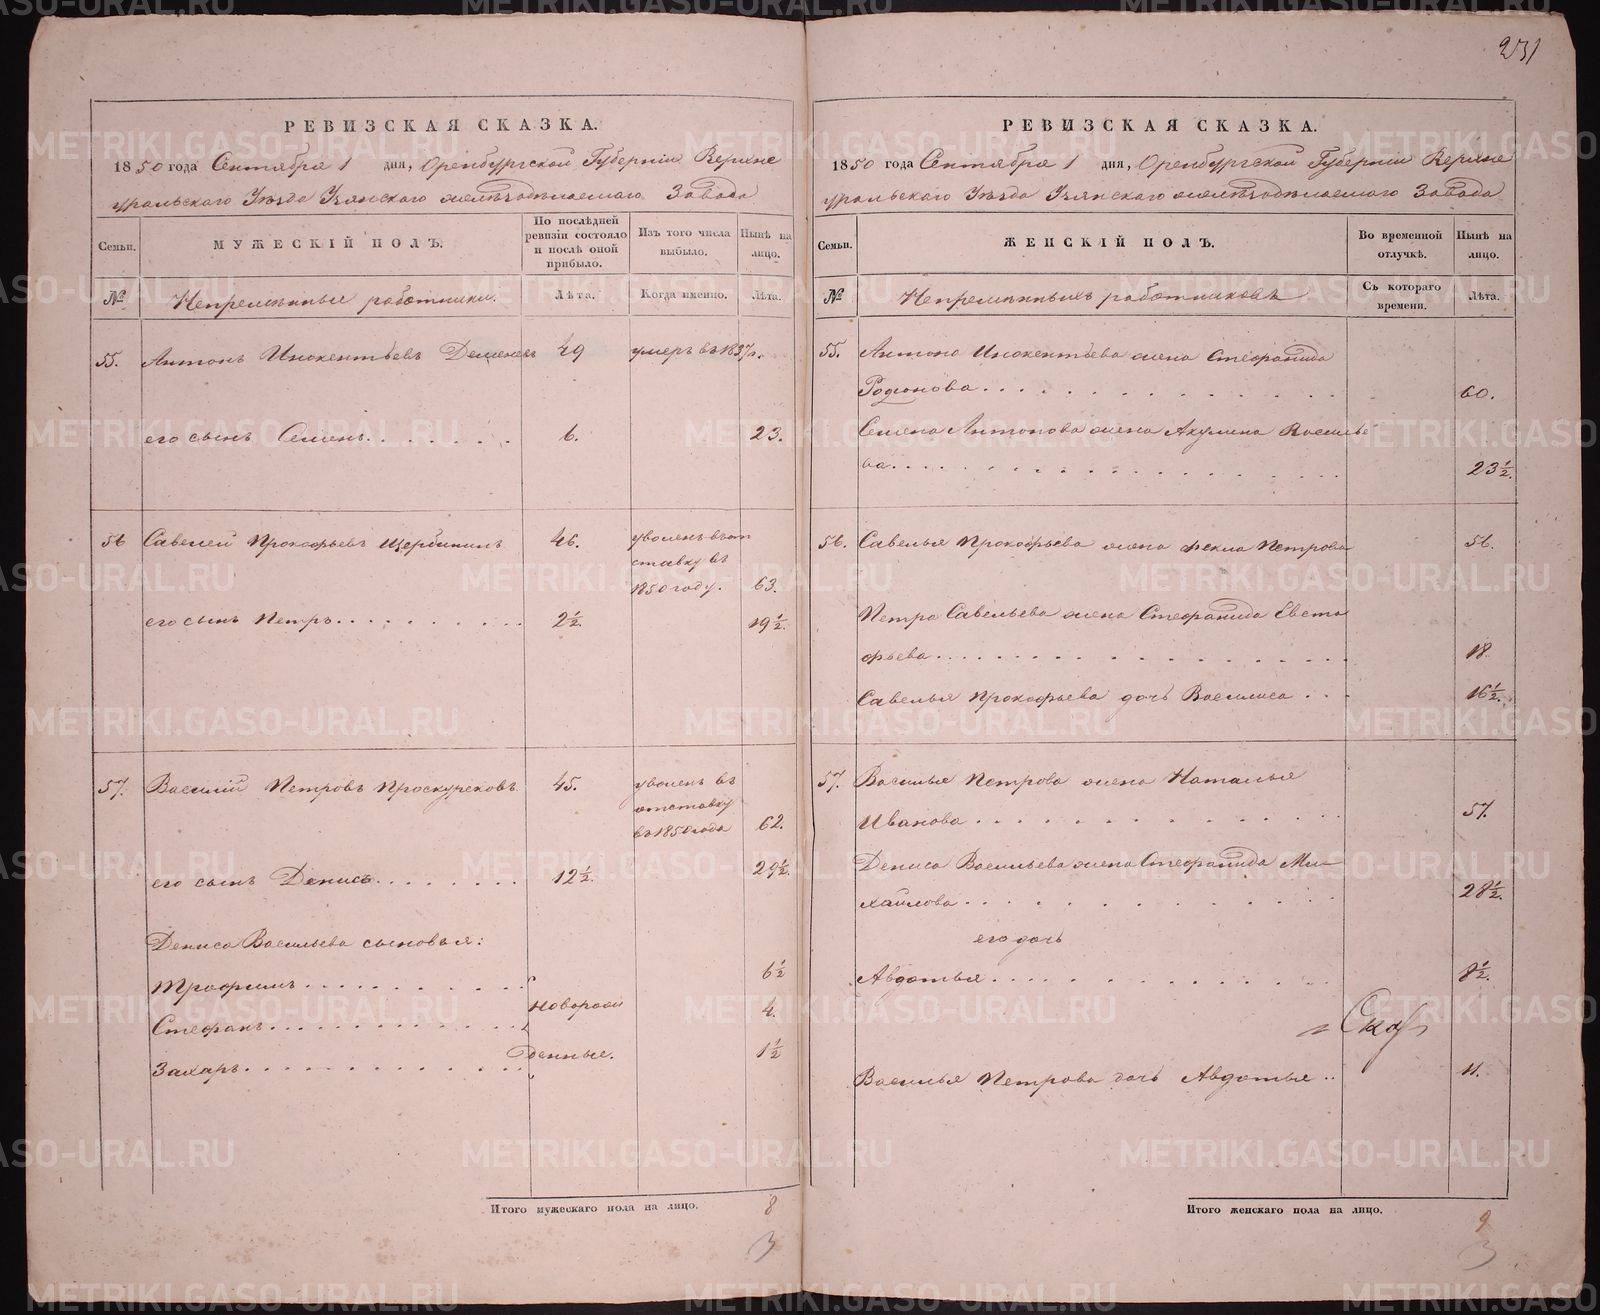 231
РЕВИЗСКАЯ СКАЗКА.
1850 года Сентября 1 дня, Оренбургской Губерніи Верхне
уральскаго Уѣзда Узянскаго желѣзодѣлаемаго Завода
Семьи.
МУЖЕСКІЙ ПОЛЪ.
По послѣдней ревизіи состояло и послѣ оной прибыло.
Изъ того числа выбыло.
Нынѣ на лицо.
№
Непремѣнные работники.
Лѣта.
Когда именно.
Лѣта.
55. Антонъ Инокентьевъ 49 умеръ въ 1837 г.
его сынъ Семенъ. . . . . . . 6. 23.
56 Савелей Прокофьевъ Щербининъ 46. уволенъ въ от
ставку въ
1850 году. 63.
его сынъ Петръ. . . . . . . . . . 2½. 19½.
57. Василій Петровъ Проскуряковъ 45. уволенъ въ
отставку
въ 1850 года 62.
его сынъ Денисъ. . . . . . . . 12½. 29½.
Дениса Васильева сыновья:
Трофимъ. . . . . . . . . . . 6½
Стефанъ. . . . . . . . . . . . новорож 4.
Захаръ. . . . . . . . . . . . . денные. 1½
Итого мужескаго пола на лицо. 8
3
РЕВИЗСКАЯ СКАЗКА.
1850 года Сентября 1 дня, Оренбургской Губерніи Верхне
уральскаго Уѣзда Узянскаго желѣзодѣлаемаго Завода
Семьи.
ЖЕНСКІЙ ПОЛЪ.
Во временной отлучкѣ.
Нынѣ на лицо.
№
Непремѣнныхъ работниковъ
Съ котораго времени.
Лѣта.
55. Антона Инокентьева жена Стефанида
Родионова. . . . . . . . . . . . . 60.
Семена Антонова жена Акулина Василье
ва. . . . . . . . . . . . . . . 23½.
56. Савелья Прокофьева жена Фекла Петрова 56.
Петра Савельева жена Стефанида Евста
фьева. . . . . . . . . . . . . . 18.
Савелья Прокофьева дочь Василиса . . . 16½.
57. Василья Петрова жена Наталья
Иванова . . . . . . . . . . . . . 57.
Дениса Васильева жена Стефанида Ми-
хайлова . . . . . . . . . . . . 28½.
его дочь
Авдотья. . . . . . . . . . . . . 8½.
Василья Петрова дочь Авдотья .. 11.
Итого женскаго пола на лицо. 9
3
METRIKI.GASO-URAL.RU